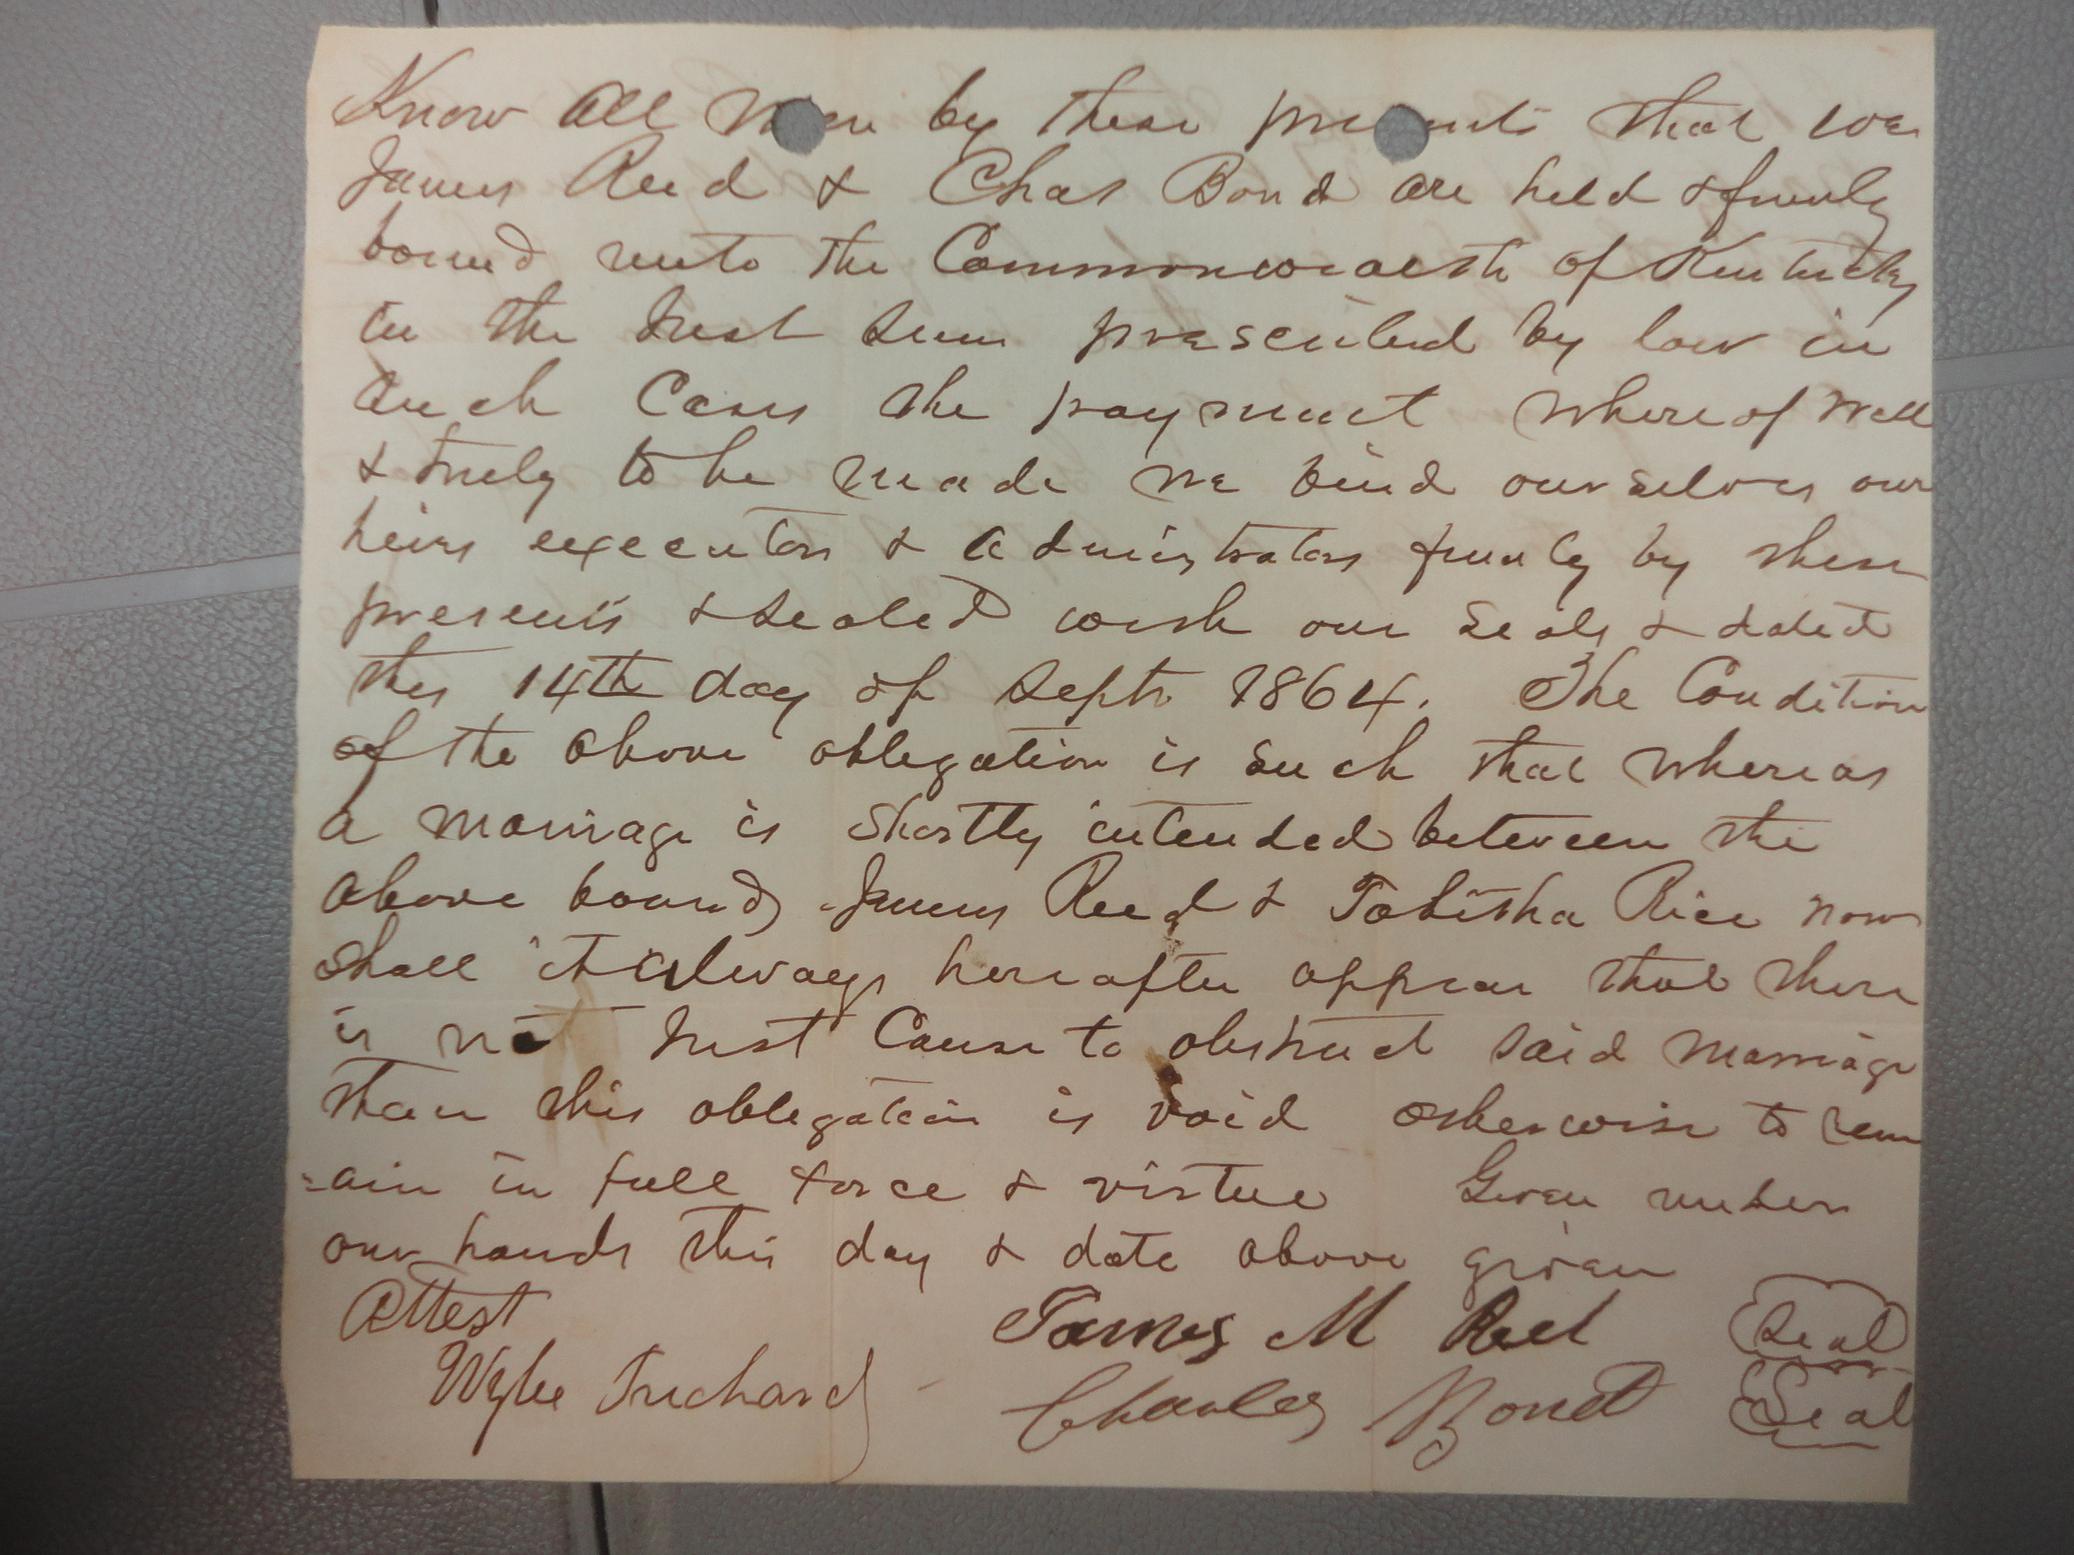 Know all Men by these presents that we
James Reed & Chas Bond are held & firmly
bound unto the Commonwealth of Kentucky
in the Just Sum prescribed by law in
Such Cases the payment whereof well
& truly to be made we bind ourselves our
heirs executors & administrators firmly by these
presents & sealed with our Seals & dated
this 14th day of Septr 1864. The Condition
of the above obligation is Such that whereas
a marriage is shortly intended between the
above bound James Reed & Tabitha Rice now
shall it always hereafter appear that there
is not Just Cause to obstruct said marriage
then this obligation is void otherwise to rem
=ain in full force & virtue Given under
our hands this day & date above given
Attest James M Reed Seal
Wylie Charles Bond Seal